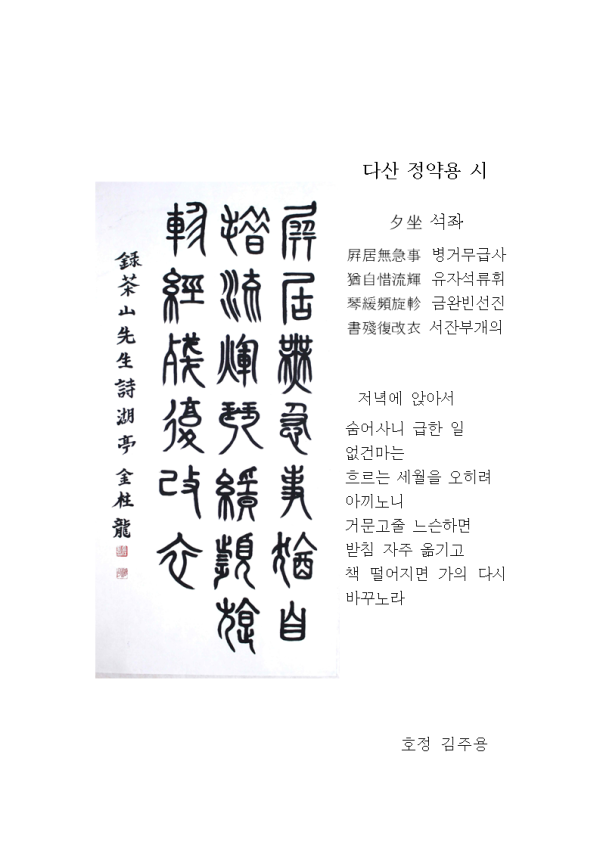 다산 정약용 시
夕坐 석좌
屛居無急事 병거무급사
猶自惜流輝 유자석류휘
琴緩頻旋軫 금완빈선진
書殘復改衣 서잔부개의
저녁에 앉아서
숨어사니 급한 일
없건마는
흐르는 세월을 오히려
아끼노니
거문고줄 느슨하면
받침 자주 옮기고
책 떨어지면 가의 다시
바꾸노라
호정 김주용
屛居無急事猶自
惜流輝琴緩頻旋
軫經殘復改衣
錄茶山先生詩湖亭 金柱龍